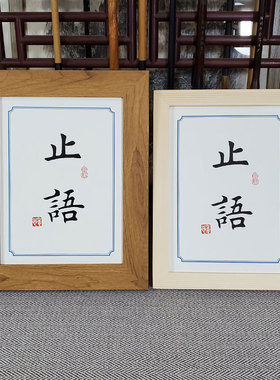 止
語
止
語